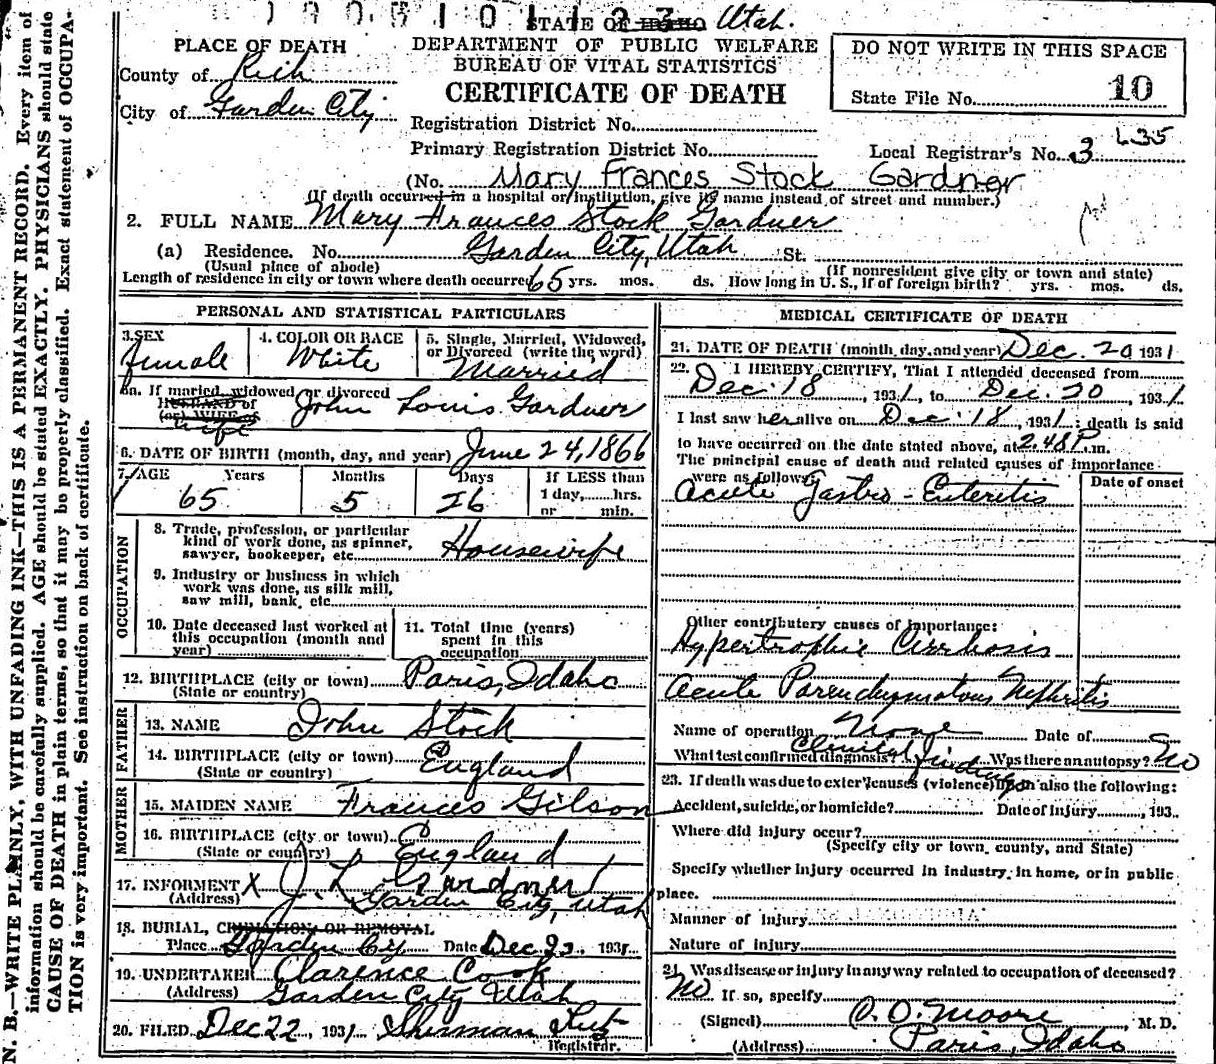 STATE OF IDAHO Utah.
DEPARTMENT OF PUBLIC WELFARE
BUREAU OF VITAL STATISTICS
CERTIFICATE OF DEATH
PLACE OF DEATH
County of Rich
City of Garden City
DO NOT WRITE IN THIS SPACE
State File No. 10
Registration District No.
Primary Registration District No.
Local Registrar's No. 3 L35
(No. Mary Frances Stock Gardner
(If death occurred in a hospital or institution, give its name instead of street and number.)
2. FULL NAME Mary Frances Stock Gardner
(a) Residence. No. Garden City, Utah St.
(Usual place of abode) (If nonresident give city or town and state)
Length of residence in city or town where death occurred 65 yrs. mos. ds. How long in U. S., if of foreign birth? yrs. mos. ds.
PERSONAL AND STATISTICAL PARTICULARS
3. SEX
female
4. COLOR OR RACE
White
5. Single, Married, Widowed,
or Divorced (write the word)
Married
5a. If maried, widowed or divorced
HUSBAND of
(or) WIFE of
wife
John Louis Gardner
6. DATE OF BIRTH (month, day, and year) June 24, 1866
7. AGE Years Months Days If LESS than
1 day, hrs.
or min.
65 5 26
OCCUPATION
8. Trade, profession, or particular
kind of work done, as spinner,
sawyer, bookeeper, etc. Housewife
9. Industry or business in which
work was done, as silk mill,
saw mill, bank, etc.
10. Date deceased last worked at
this occupation (month and
year)
11. Total time (years)
spent in this
occupation
12. BIRTHPLACE (city or town) Paris, Idaho
(State or country)
FATHER
13. NAME John Stock
14. BIRTHPLACE (city or town) England
(State or country)
MOTHER
15. MAIDEN NAME Frances Gilson
16. BIRTHPLACE (city or town) England
(State or country)
17. INFORMENT X J. L. Gardner
(Address) Garden City, Utah
18. BURIAL, CREMATION, OR REMOVAL
Place Garden City Date Dec 23 1931
19. UNDERTAKER Clarence Cook
(Address) Garden City Utah
20. FILED Dec 22, 1931 Sherman
Registrar.
MEDICAL CERTIFICATE OF DEATH
21. DATE OF DEATH (month, day, and year) Dec. 20 1931
22. I HEREBY CERTIFY, That I attended deceased from
Dec. 18, 1931, to Dec. 20, 1931.
I last saw her alive on Dec. 18, 1931; death is said
to have occurred on the date stated above, at 2.48 P. m.
The principal cause of death and related causes of importance
were as follows: Date of onset
Acute Gastro-Enteritis
Other contributery causes of importance:
Hypertrophic Cirrhosis
Acute Parenchymatous Nephritis
Name of operation None Date of
What test confirmed diagnosis? Clinical findings Was there an autopsy? No
23. If death was due to exter. causes (violence) fill in also the following:
Accident, suicide, or homicide? Date of injury, 193
Where did injury occur?
(Specify city or town, county, and State)
Specify whether injury occurred in industry, in home, or in public
place.
Manner of injury
Nature of injury
24. Was disease or injury in any way related to occupation of deceased?
No If so, specify
(Signed) C. O. Moore, M. D.
(Address) Paris, Idaho
N. B.—WRITE PLAINLY, WITH UNFADING INK—THIS IS A PERMANENT RECORD. Every item of
information should be carefully supplied. AGE should be stated EXACTLY. PHYSICIANS should state
CAUSE OF DEATH in plain terms, so that it may be properly classified. Exact statement of OCCUPA-
TION is very important. See instruction on back of certificate.